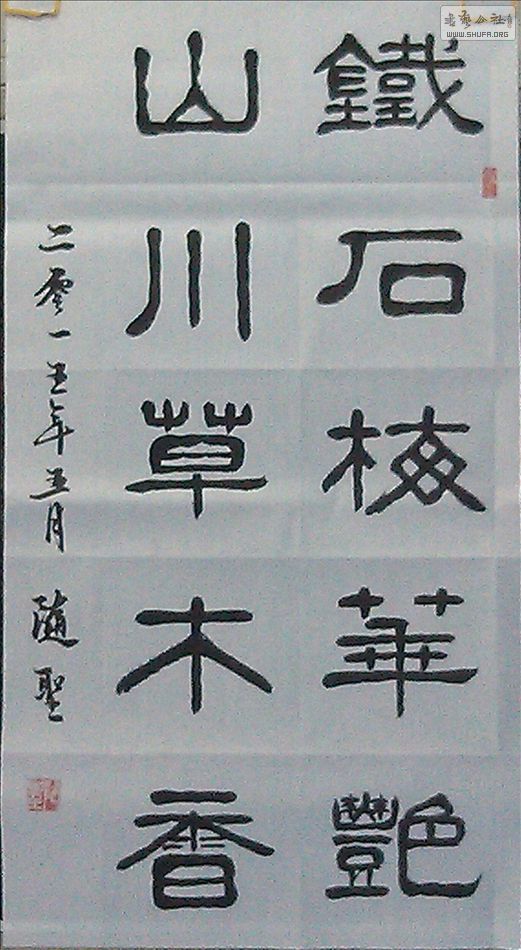 鐵石梅華豔
山川草木香
二零一五年五月 隨聖
書藝公社
WWW.SHUFA.ORG